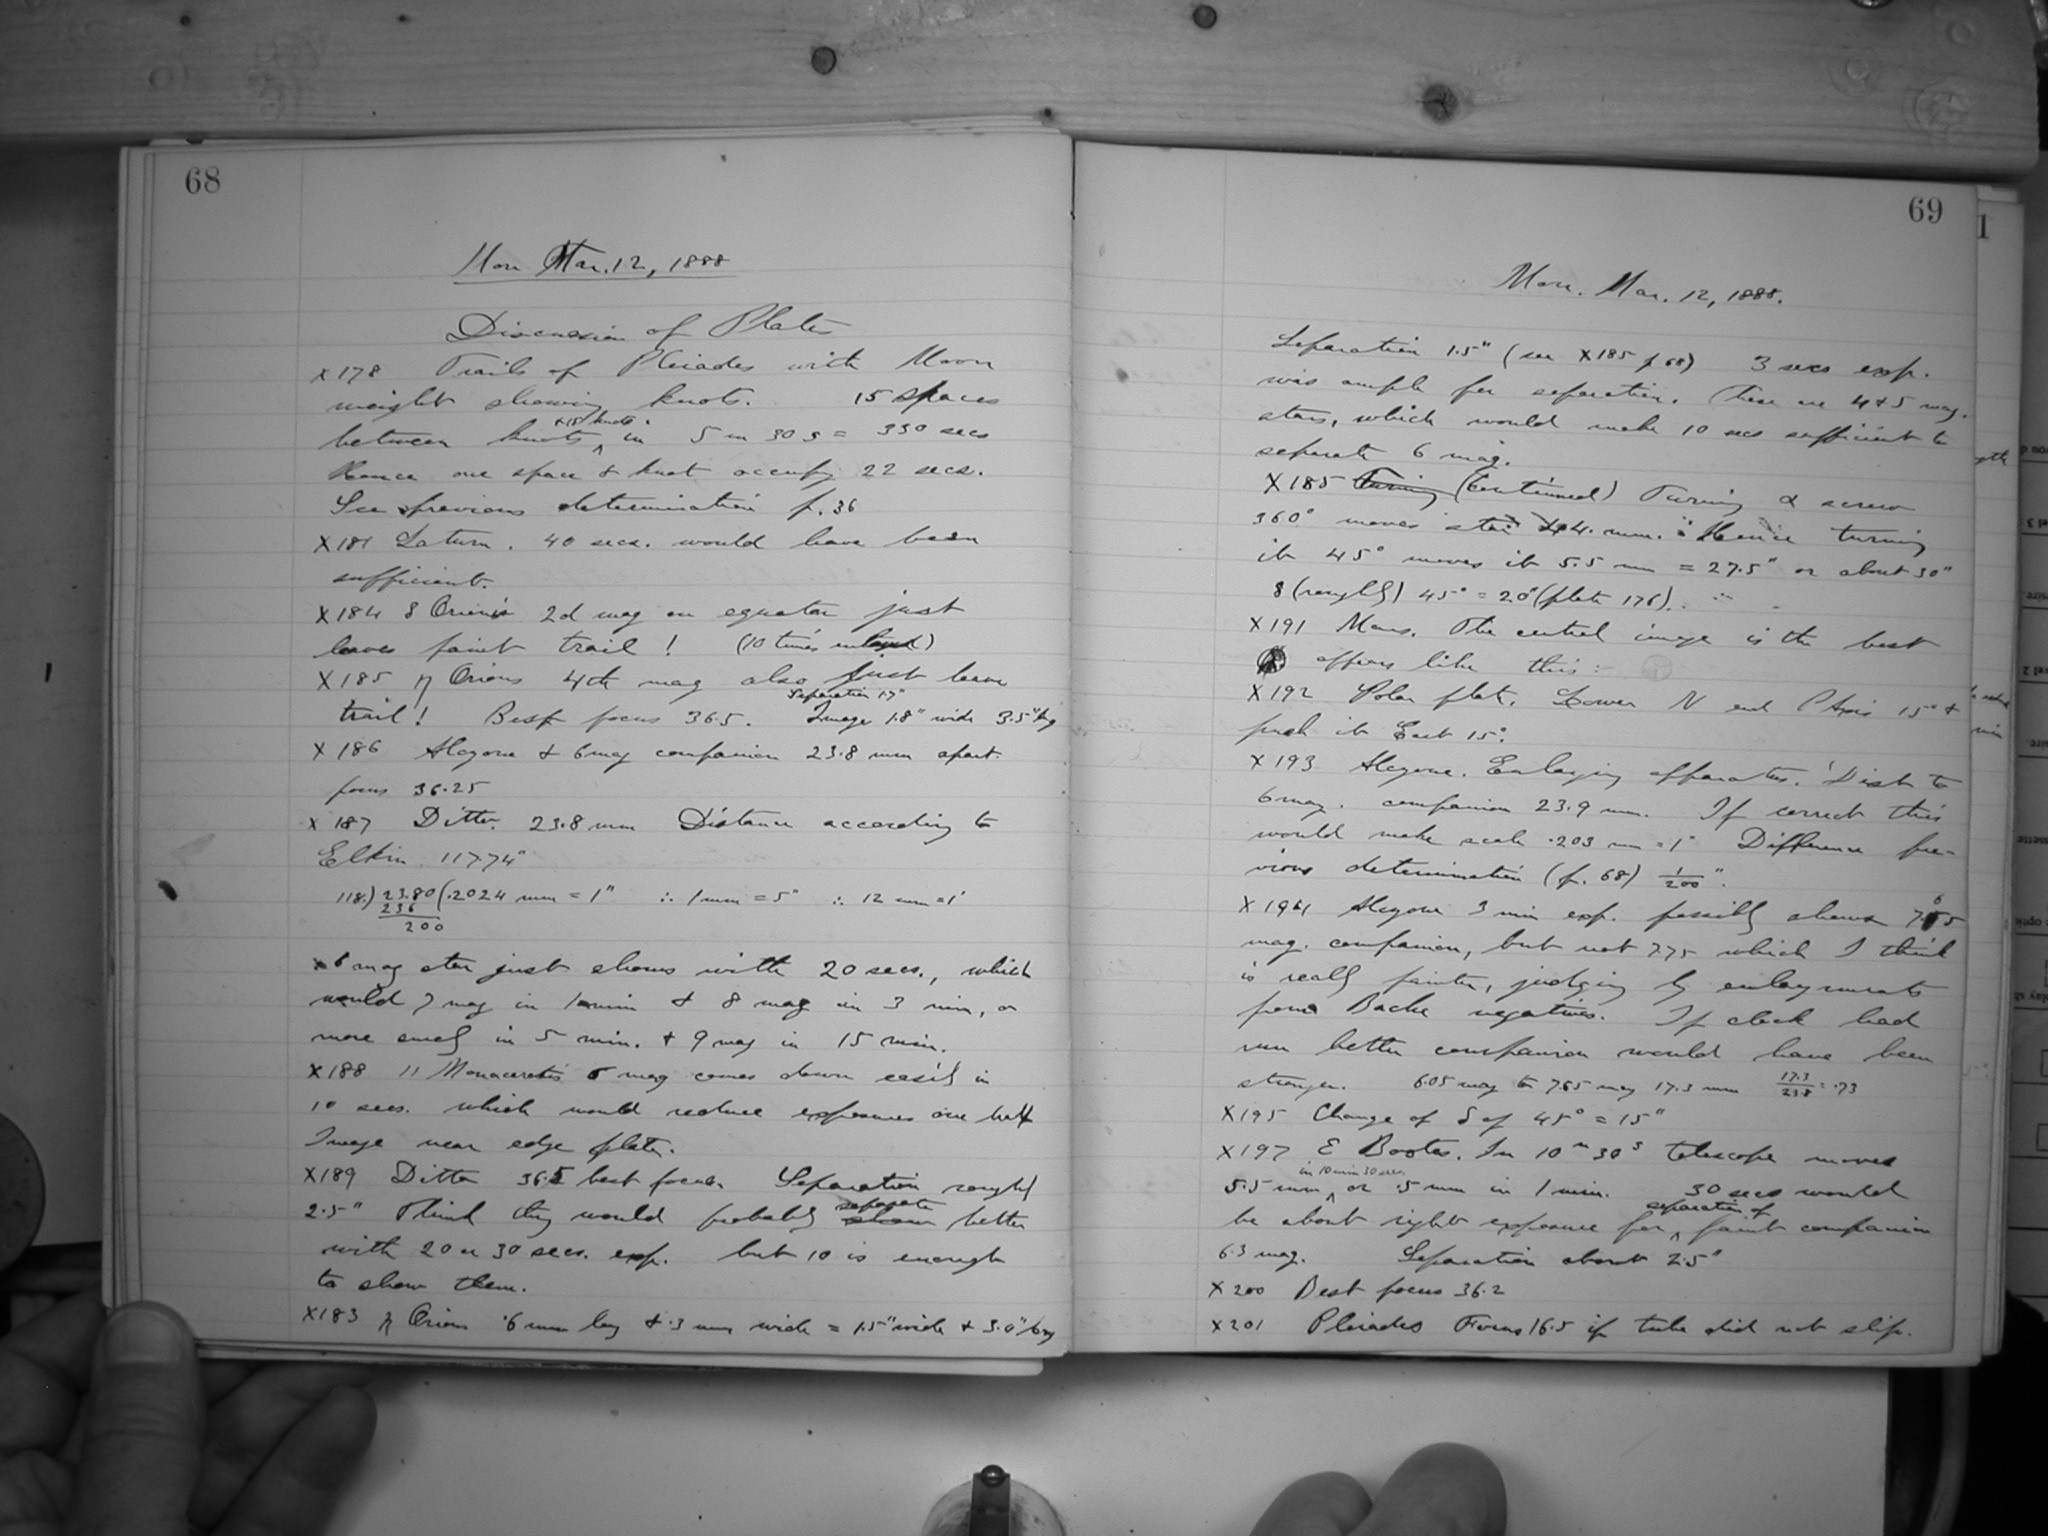 68
Mon Mar. 12, 1888
Discussion of Plates
X178 Trails of Pleiades with Moon
weight showing knots. 15 spaces
+15 knots.
between knots ‸ in 5 m 30 s = 330 secs
Hence one space & knot occupy 22 secs.
See previous determination p. 36
X181 Saturn. 40 secs. would have been
sufficient.
X184 δ Orionis 2d mag on equator just
leaves faint trail! (10 times enlarged)
X185 η Orionis 4th mag also just leave
Separation 1.7"
trail! Best focus 36.5. Image 1.8" wide 3.5" lng
X186 Alcyone & 6 mag companion 23.8 mm apart.
focus 36.25
X187 Ditto. 23.8 mm Distance according to
Elkin 117.74"
118.) 23.80 (.2024 mm = 1" ∴ 1 mm = 5" ∴ 12 mm = 1'
236
200
X 6 mag star just shows with 20 secs., which
would 7 mag in 1 min & 8 mag in 3 min, or
more surely in 5 min. & 9 mag in 15 min.
X188 11 Monocerotis 6 mag comes down easily in
10 secs. which would reduce exposures one half
Image near edge plate.
X189 Ditto 36.5 best focus. Separation roughly
separate
2.5" Think they would probably show better
with 20 or 30 secs. exp. but 10 is enough
to show them.
X183 η Orionis .6 mm long & .3 mm wide = 1.5" wide & 3.0" lng
69
Mon. Mar. 12, 1888.
Separation 1.5" (see X185 p 68) 3 secs exp.
was ample for separation. These are 4 & 5 mag.
stars, which would make 10 secs sufficient to
separate 6 mag.
X185 Turning (continued) Turning α screw
360° moves star 44. mm. Hence turning
it 45° moves it 5.5 mm = 27.5" or about 30"
δ (roughly) 45° = 20" (plate 176).
X191 Mars. The central image is the best
appears like this:-
X192 Polar plate. Lower N end P Axis 15° &
push it East 15°.
X193 Alcyone. Enlarging apparatus. Dist to
6 mag. companion 23.9 mm. If correct this
would make scale .203 mm = 1" Difference pre-
vious determination (p. 68) 1/200".
X194 Alcyone 3 min exp. possibly shows 7.65
mag. companion, but not 7.75 which I think
is really fainter, judging by enlargements
from Bache negatives. If clock had
run better companion would have been
stronger. 6.05 mag to 7.65 mag 17.3 mm 17.3/23.8 = .73
X195 Change of δ of 45° = 15"
X197 Ε Bootes. In 10 m 30 s telescope moves
in 10 min 30 secs
5.5 mm ‸ or .5 mm in 1 min. 30 secs would
separation of
be about right exposure for ‸ faint companion
6.3 mag. Separation about 2.5"
X200 Best focus 36.2
X201 Pleiades Focus 16.5 if tube did not slip.